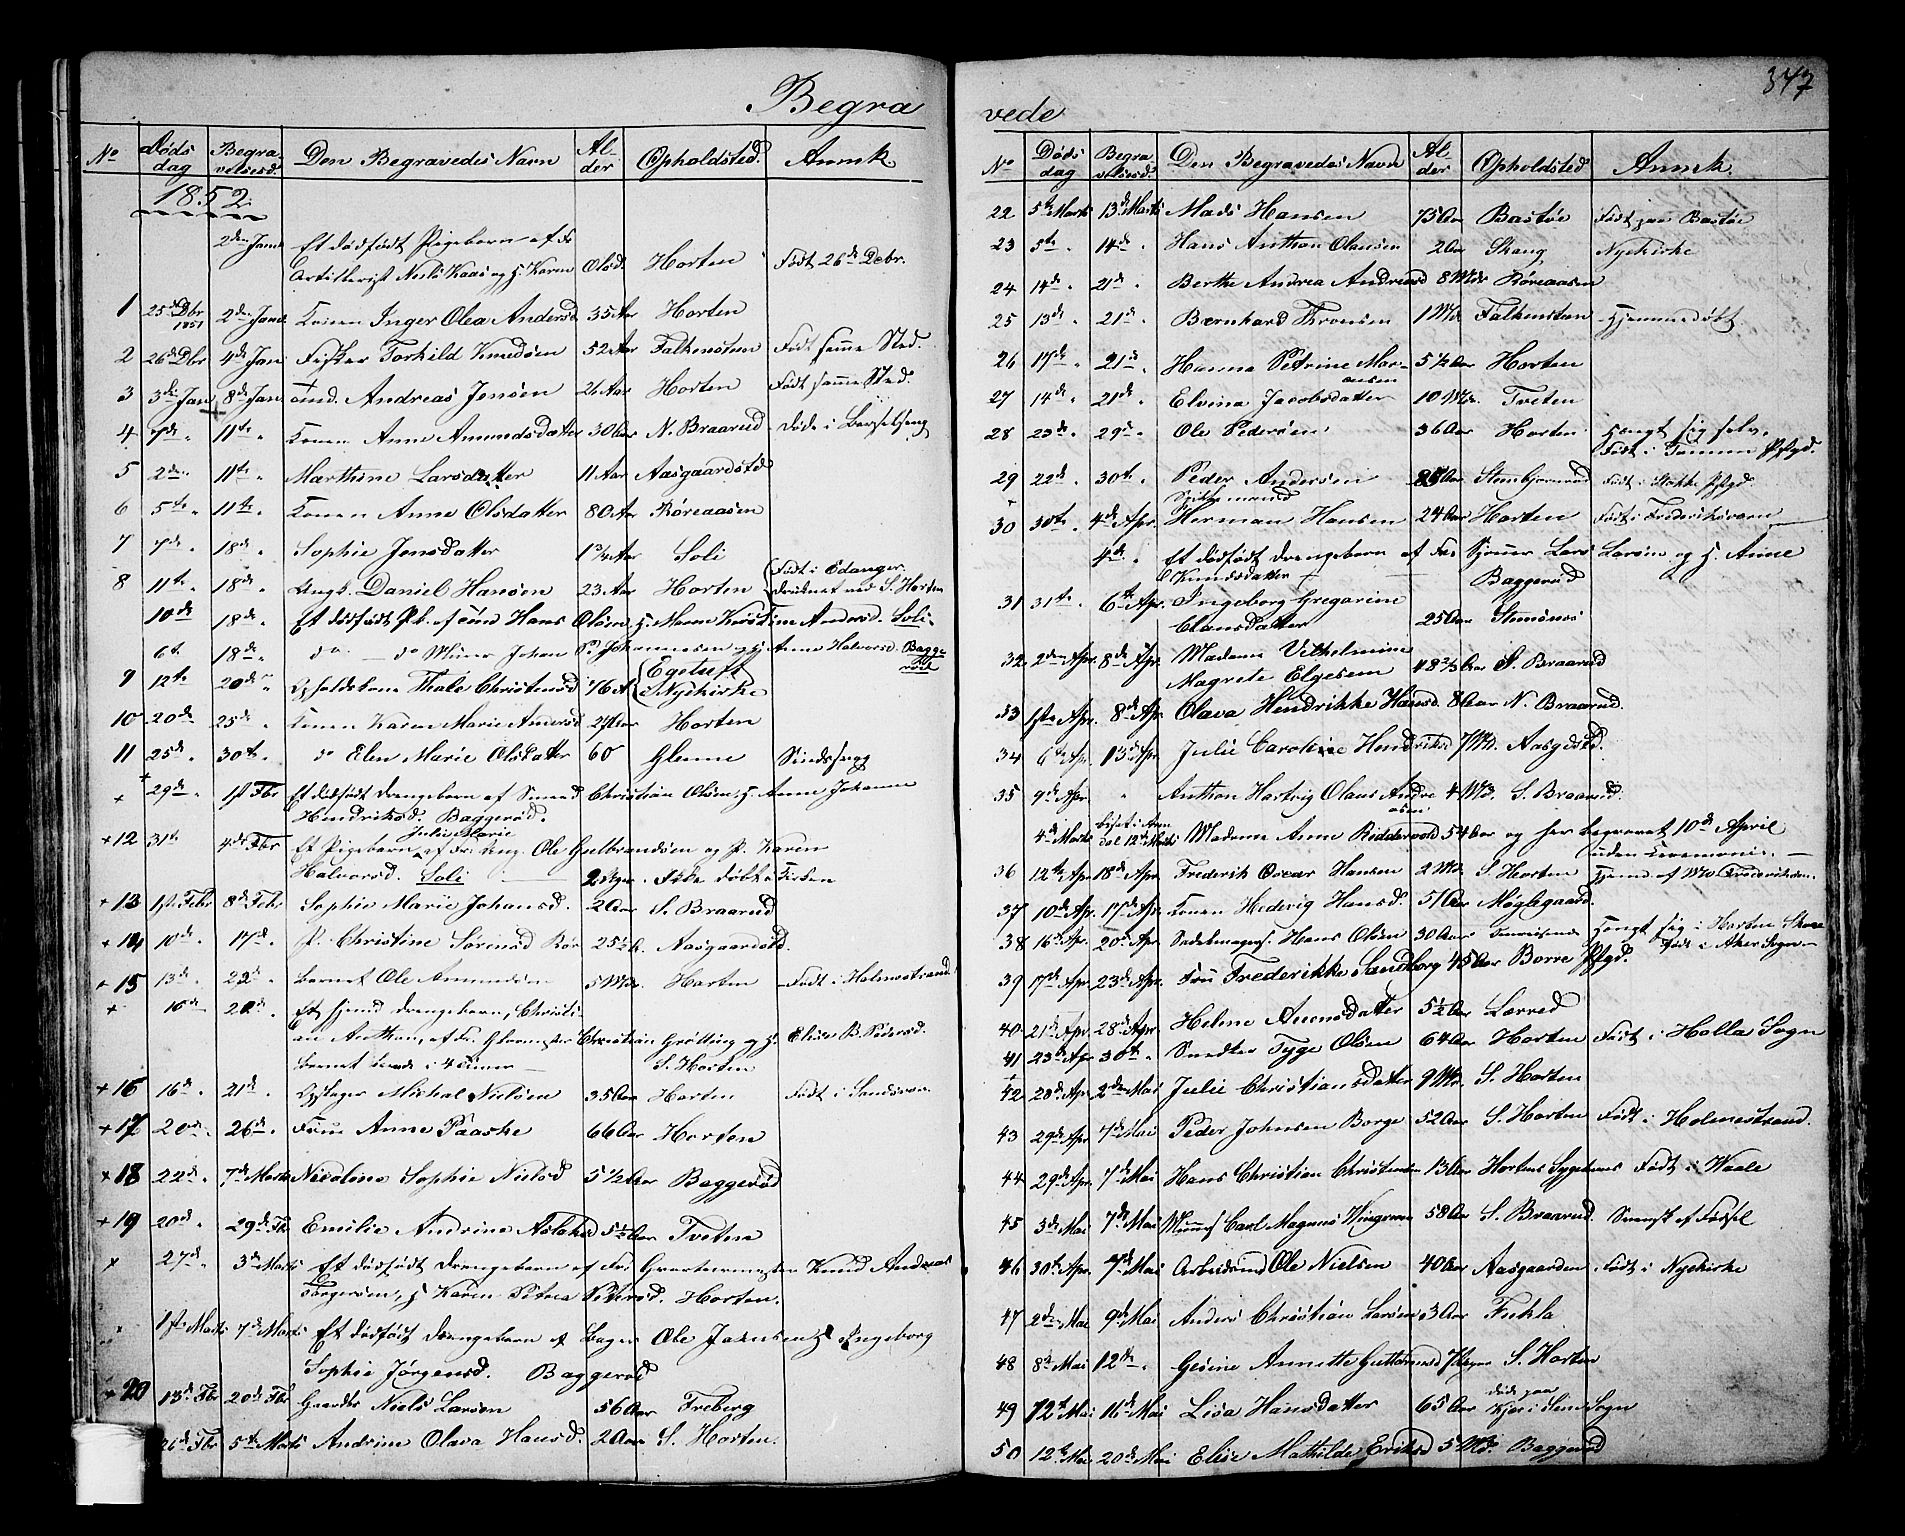 Begra
No Døds dag Begravelsesd. Den Begravedes Navn Alder Opholdsted. Anmk.
1852.
2den Jan. Et dødfødt Pigebarn af
Artillerist Niels Kaas og H. Karen Olsd. Horten Født 26de Debr.
1 25de Dbr 1851 2den Jan. Konen Inger Olea Andersd 35 Aar Horten
2 26de Dbr 4de Jan Fisker Torkild Knudsen 52 Aar Falkensten Født samme Sted.
3 3die Jan 8de Jan. Andreas Jensen 2 Aar Horten Født samme Sted.
4 7de " 11te " Konen Anne Amundsdatter 30 Aar N. Braarud Døde i Barselseng
5 2den " 11te " Marthine Larsdatter 11 Aar Aasgaardstd
6 5te " 11te " Konen Anne Olsdatter 80 Aar Røreaasen
7 7de " 18de " Sophie Jensdatter 1 3/4 Aar Soli
8 11te " 18de " Ungk. Daniel Hansen 23 Aar Horten Født i Edanger druknet ved S. Horten
10de 18de " Et dødfødt P.b. af Hans Olsen H. Maren Kristine Andersd. Soli.
6te 18de " do — do Murer Johan P. Johannesen og H. Anne Halvorsd. Baggerød
9 12te 20de " Thale Christensd 76 A Egetuft i Nyekirke
10 20de 25de " Konen Karen Marie Andersd. Aar Horten
11 25de " 30te " do Elen Marie Olsdatter 60 Glenne
+ 29de " 1ste Fbr Et dødfødt Drengebarn af Christian Olsen H. Anne Johanne
Hendriksd. Baggerød.
Julie Marie
+12 31te 4de Fbr Et Pigebarn af Ole Gulbrandsen og P. Karen
Halvorsd. Soli — 2 Dage. Ikke døbt i Kirken
+13 1ste Febr 8de Febr Sophie Marie Johansd. 2 Aar S. Braarud
+14 10de " 17de " P. Christine Sørensd Bør 25 1/2 A. Aasgaardstd.
+15 13de " 22de Barnet Ole Amundsen 5 Mdr Horten Født i Holmestrand
+ 16de 20de " Et Drengebarn, Christian
Anthon, af Christian Grøtting og H. Elise B. Pedersd.
Barnet levede i 4 Timer — S. Horten
+16 16de " 21de " Michal Nielsen 35 Aar Horten Født i Sandsver
+17 20de " 26de " Frue Anne Paaske 66 Aar Horten
+18 22de " 7de Marts Nicoline Sophie Nielsd 5 1/2 Aar Baggerød
+19 20de " 29de Fbr Emilie Andrine Aslaksd 5 1/2 Aar Tveten
x 27de " 3de Marts Et dødfødt Drengebarn af Knud Andreas
Torgersen, H. Karen Petrea Pedersd. Horten.
1ste Marts 7de Marts Et dødfødt Drengebarn af Bager Ole Jacobsen H Ingeborg
Sophie Jørgensd. Baggerød
+20 13de Fbr 20de Fbr Gaardbr Niels Larsen 56 Aar Freberg
26de Fbr 5te Marts Andrine Olava Hansd. 2 Aar S. Horten.
347
vede
No Døds dag Begravelsesd. Den Begravedes Navn Alder Opholdsted Anmk.
22 5te Marts 13de Marts Mads Hansen 75 Aar Bastøe Født paa Bastøe
23 5te " 14de " Hans Anthon Olausen 2 Aar Skaug Nyekirke
24 14de " 21de " Berthe Andrea Andreasd 8 Mdr Røreaasen
25 13de " 21de " Bernhard Thronsen 1 Md. Falkensten Hjemmedøbt
26 17de " 21de " Hanna Petrine Marensen 5 1/2 Aar Horten
27 14de " 21de " Elvina Jacobsdatter 10 Mdr Tveten
28 23de " 29de " Ole Pedersen 36 Aar Horten Hængt sig selv.
Født i Præstgd.
29 22de " 30te " Peder Andersen Aar Født i Stokke Præstgd.
30 30te " 4de Apr. Herman Hansen 24 Aar Horten Født i Frederiksværn
4de " Et dødfødt Drengebarn af Lars Larsen og H. Anne
Knudsdatter — Baggerød
31 31te " 6te Apr. Ingeborg Gregorine
Olausdatter 25 Aar
32 2den Apr. 8de Apr. Madame Vilhelmine
Magrete Elgesem 48 2/3 Aar S. Braarud
33 1ste Apr. 8de Apr. Olava Hendrikke Hansd. 8 Aar N. Braarud.
34 6te Apr. 13de Apr. Julie Caroline Hendriksd 7 Md. Aasgdstd.
35 9de Apr " Anthon Hartvig Olaus Andreasen 4 Md. S. Braarud.
4de Marts 12te Marts Madame Anne Ridderwold 54 Aar og her begravet 10de April
uden Ceremonie. —
36 12te Apr. 18de Apr. Frederik Oscar Hansen 2 Md. S. Horten
37 10de Ap. 17de Apr. Konen Hedevig Hansd. 51 Aar
38 16te Ap. 20de Apr. Sadelmagers. Hans Olsen 30 Aar Hængt sig i Horten Skov
Født i Aker Sogn —
39 17de Apr. 23de Apr. Fru Frederikke Sandborg 45 Aar Borre Præstgd.
40 21de Apr. 28de Apr. Helene Avensdatter 5 1/2 Aar Lærred
41 23de Apr. 30te " Smedker Tyge Olsen 64 Aar Horten Født i Holla Sogn
42 28de Apr. 2den Mai Julie Christiansdatter 9 Md. S. Horten
43 29de Apr 7de Mai Peder Johnsen Borge 52 Aar S. Horten Født i Holmestrand.
44 29de Apr. 7de Mai Hans Christian Christensen 13 Aar Hortens Sygehuus Født i Waale
45 3de Mai 7de Mai Carl Magnus Wingreen 58 Aar S. Braarud. Svensk af Fødsel
46 30te Apr. 7de Mai Arbeidsmd Ole Nielsen 40 Aar Aasgaarden. Født i Nyekirke
47 2den Mai 9de Mai Anders Christian Larsen 3 Aar
48 8de Mai 12te " Gesine Annette Guttormsd 7 Dage S. Horten
49 12te Mai 16de Mai Lisa Hansdatter 65 Aar døde paa Kjær i Sems Sogn
50 12te Mai 20de Mai Elise Mathilde Eriksd 5 Md. Baggerød